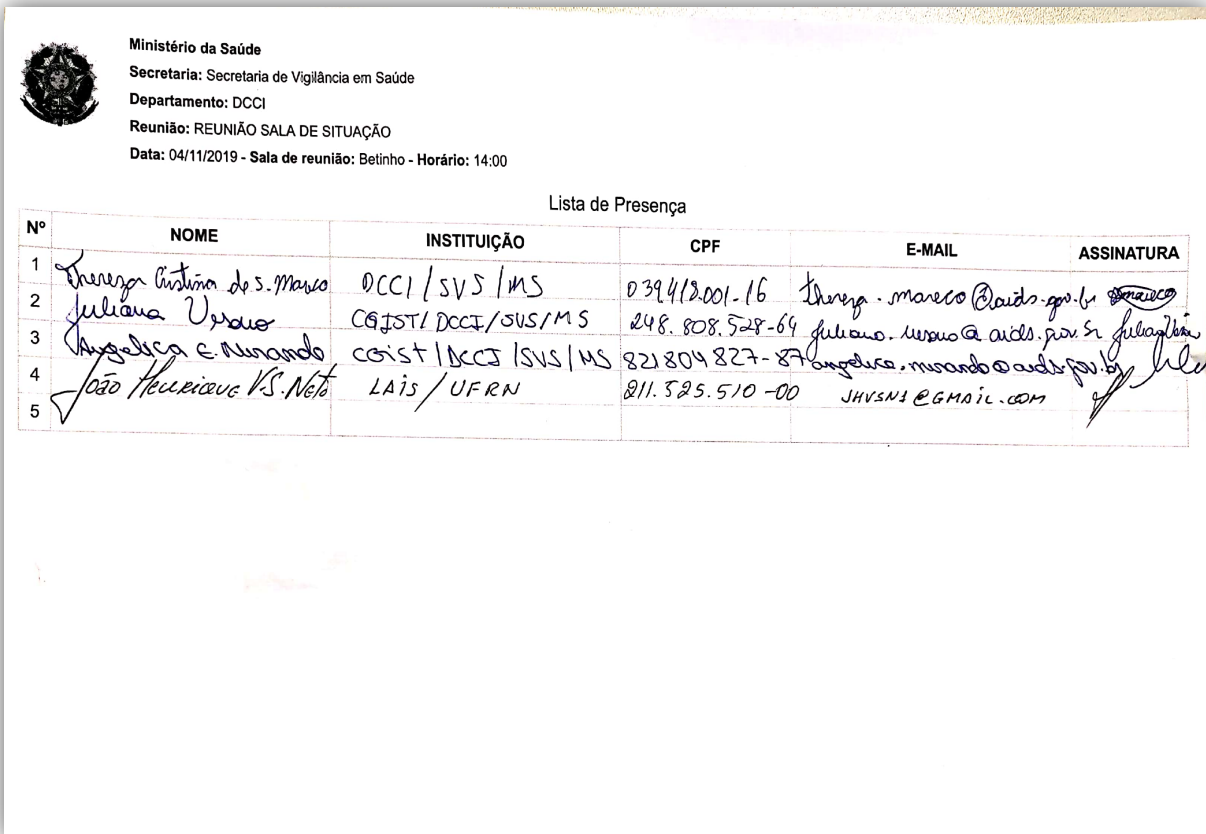 Ministério da Saúde
Secretaria: Secretaria de Vigilância em Saúde
Departamento: DCCI
Reunião: REUNIÃO SALA DE SITUAÇÃO
Data: 04/11/2019 - Sala de reunião: Betinho - Horário: 14:00
Lista de Presença
Nº NOME INSTITUIÇÃO CPF E-MAIL ASSINATURA
1 Thereza Cristina de S. Mareco DCCI/SVS/MS 039418.001-16 thereza.mareco@aids.gov.br
2 Juliana CGIST/DCCI/SVS/MS 248.808.528-64
3 Angelica E. Miranda CGIST/DCCI/SVS/MS 821804827-87 angelica.miranda@aids.gov.br
4 João Henrique V.S. Neto LAIS/UFRN 211.525.510-00 JHVSN1@GMAIL.COM
5